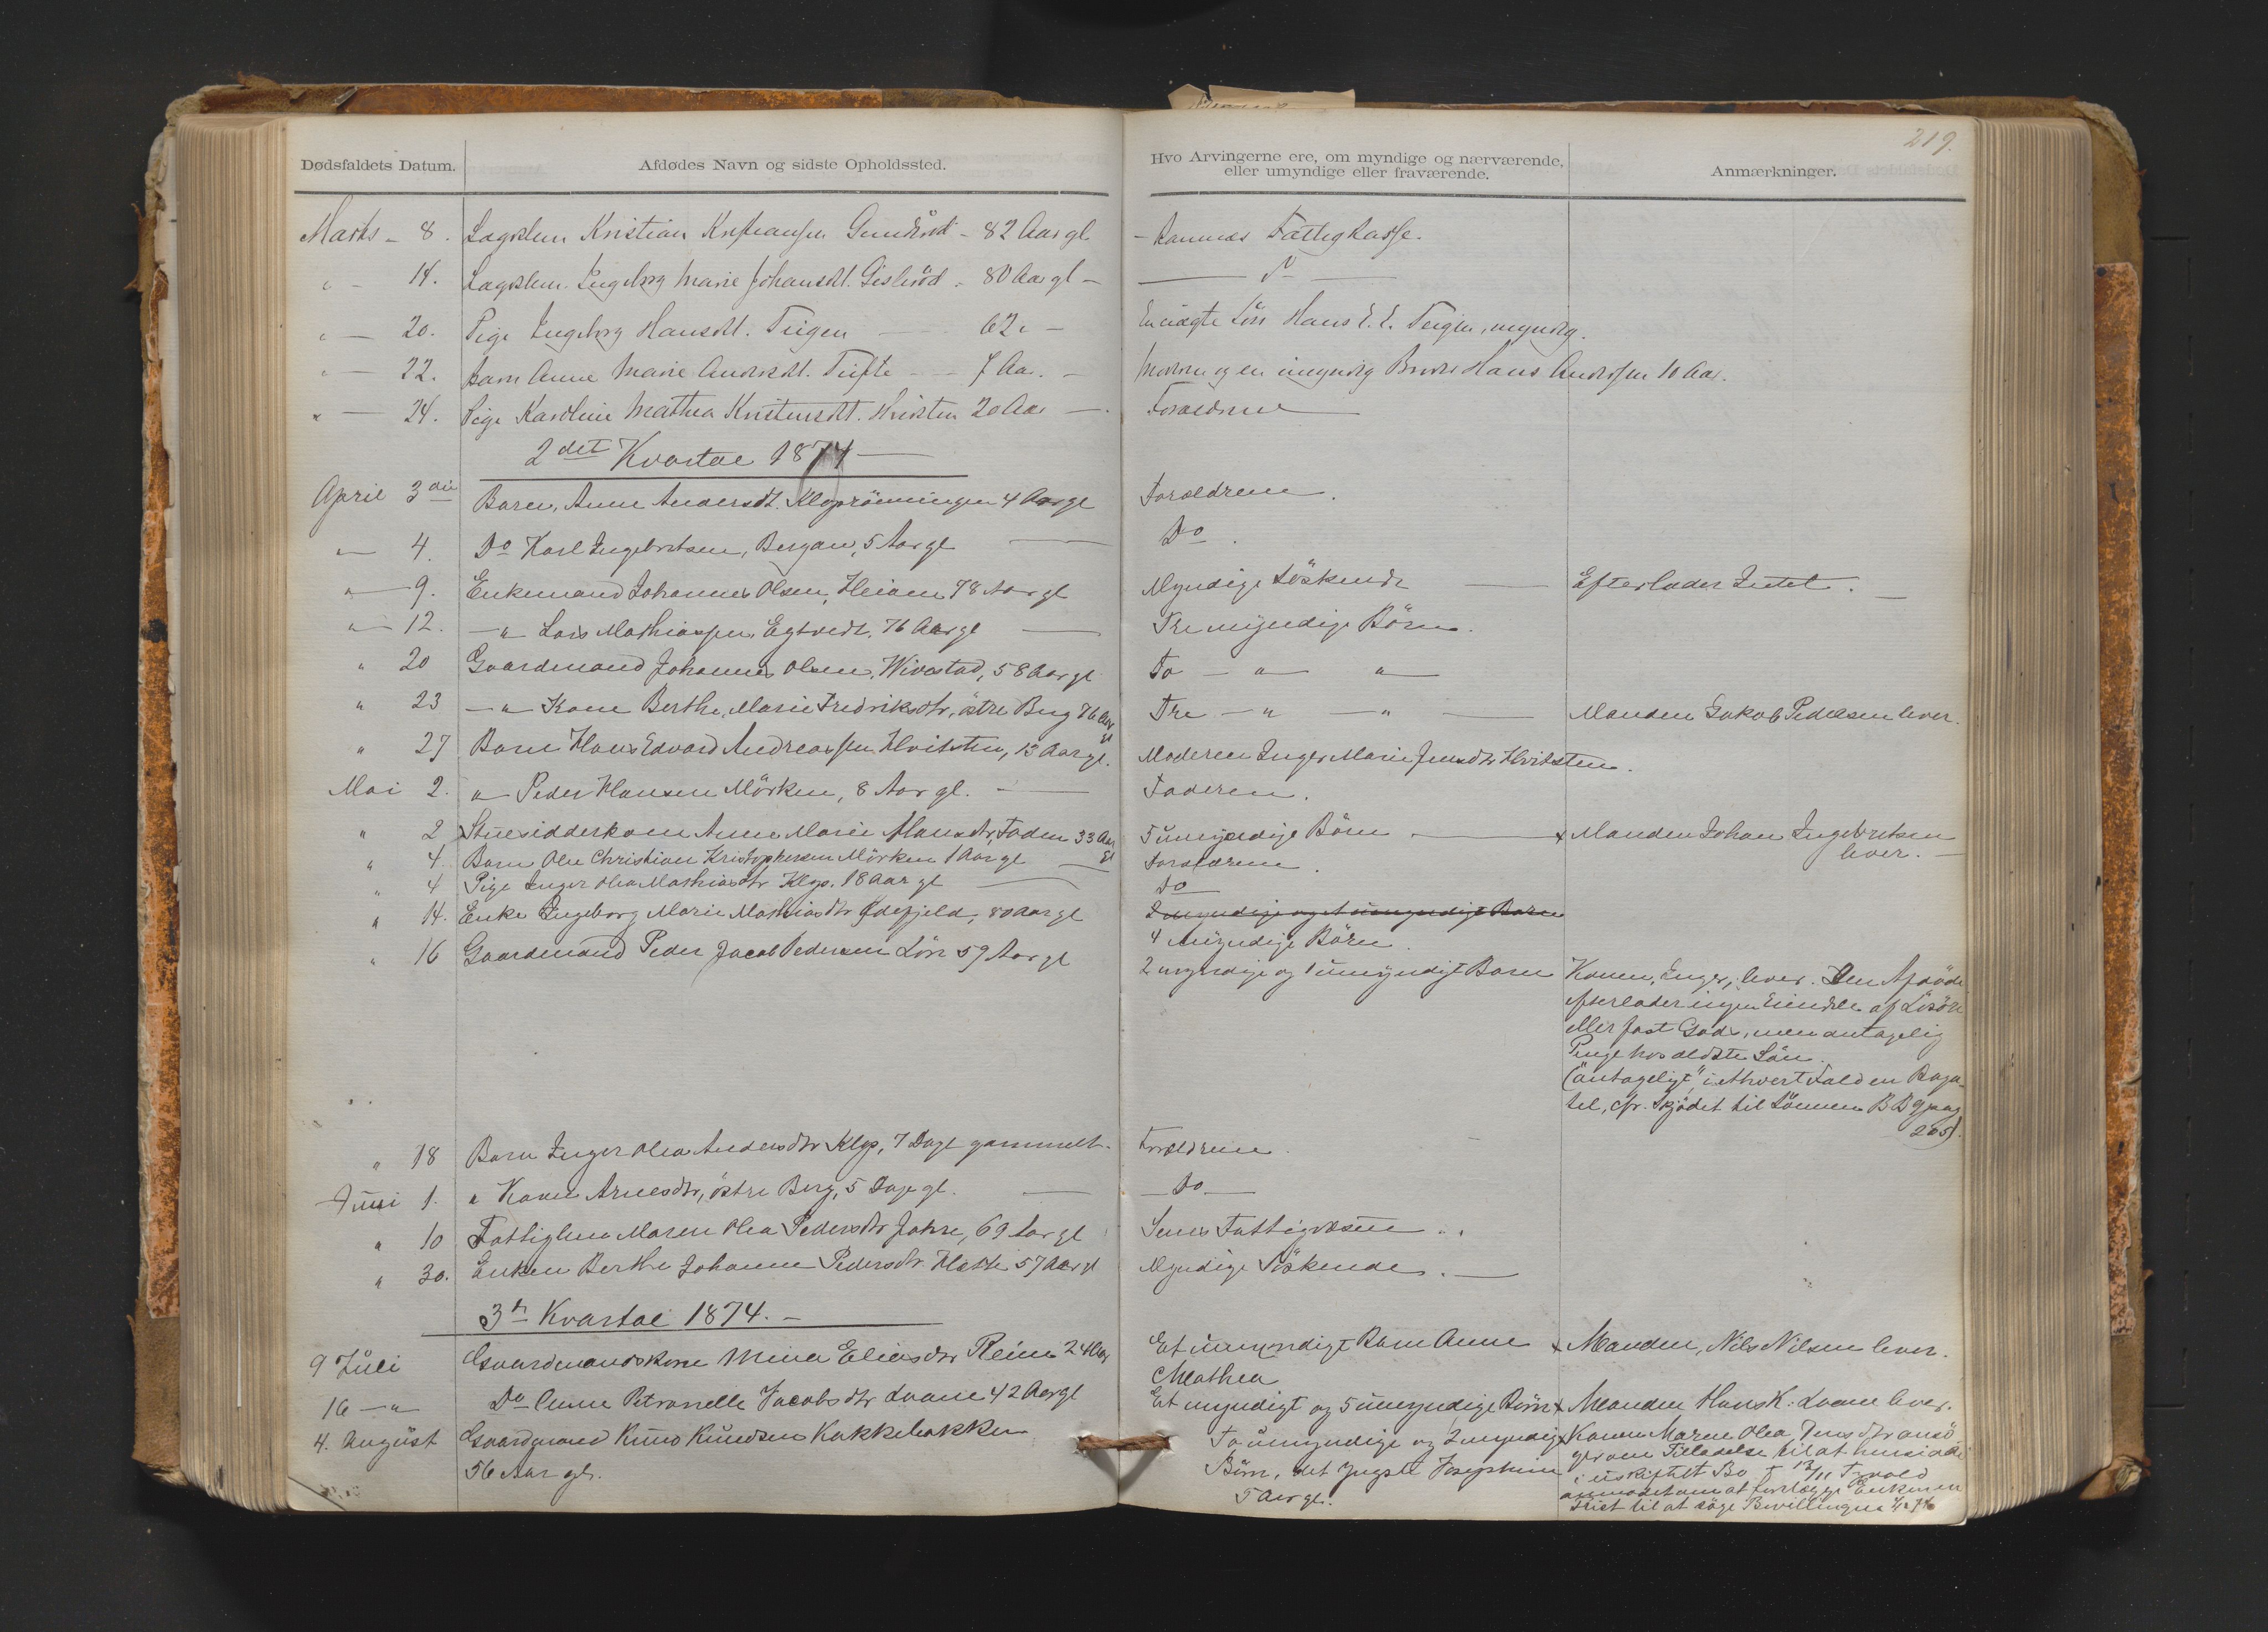 219.
Dødsfaldets Datum. Afdødes Navn og sidste Opholdssted. Hvo Arvingerne ere, om myndige og nærværende, eller umyndige eller fraværende. Anmærkninger.
Marts - 8. Lægdslem Kristian Kristiansen - 82 Aar gl. Fattigkasse.
" - 14. Lægdslem Ingeborg Marie Johansdt. Gislerød - 80 Aar gl -
" - 20. Pige Ingeborg Hansdt. Teigen - 62 " - En uægte Søn Hans E. E. Teigen, myndig.
" - 22. Barn Anne Marie Andersdt. Tufte - 7 Aar. - Moderen og en umyndig Broder Hans Andersen 10 Aar.
" - 24. Pige Karoline Mathea Kristensdt. Hvidsten 20 Aar - Forældrene
2det Kvartal 1874
April 3die Barn, Anne Andersdt. Kloprönningen 4 Aar gl Forældrene.
" 4. Do Karl Engebretsen, Bergan, 5 Aar gl Do.
" 9. Enkemand Johannes Olsen, Heiam 78 Aar gl Myndige Söskende Efterlader Intet.
" 12. - " Lars Mathiassen, Egtvedt, 76 Aar gl Tre myndige Börn.
" 20 Gaardmand Johannes Olsen, Wivestad, 58 Aar gl To - " - "
" 23 - " Kone Berthe Marie Fredriksdtr, östre Berg 76 Aar gl Tre - " - " Manden Jakob Pedersen lever.
" 27 Barn Hans Edvard Andreassen Hvitsten, 13 Aar gl. Moderen Inger Marie Jensdtr Hvitsten.
Mai 2. " Peder Hansen Mörken, 8 Aar gl. Faderen.
" 2 Stuesidderkone Anne Marie Hansdtr, Foden 33 Aar gl 5 umyndige Börn x Manden Johan Engebretsen
lever.
" 4. Barn Ole Christian Kristophersen Mörken 1 Aar gl Forældrene.
" 4 Pige Inger Olea Mathiasdtr Klop. 18 Aar gl Do
" 14. Enke Ingeborg Marie Mathiasdtr, 80 Aar gl 2 myndige og et umyndigt Barn
4 Myndige Börn.
" 16 Gaardmand Peder Jacob Pedersen Lön 59 Aar gl 2 myndige og 1 umyndigt Barn Konen, Inger, lever. Den Afdöde
efterlader ingen Eiendele af Lösöre
eller fast Gods, men antagelig
Penge hos ældste Sön.
("antageligt", i ethvert Fald en Baga-
tel, cfr. Skjödet til Sönnen B B 9 pag
205).
" 18 Barn Inger Olea Andersdtr Klop, 7 Dage gammelt. Forældrene.
Juni 1. " Karen Arnesdtr, östre Berg, 5 Dage gl. Do
" 10 Fattiglem Maren Olea Pedersdtr Jahre, 69 Aar gl Fattigvæsen
" 30. Enken Berthe Johanne Pedersdtr 57 Aar gl Myndige Söskende.
3die Kvartal 1874. -
9 Juli Gaardmandskone Mina Eliasdtr Reine 24 Aar Et umyndigt Barn Anne x Manden, Nils Nilsen lever.
Mathea
16 - " Do Anne Petronelle Jacobsdtr Loane 42 Aar gl Et myndigt og 5 umyndige Börn x Manden Hans K. Loane lever.
4. August Gaardmand Knud Knudsen Kakkebakken To umyndige og 2 myndige x Konen Maren Olea Jensdtr ansö-
56 Aar gl. Börn, det yngste Josephine ger om Tilladelse til at hensidde
5 Aar gl. i uskiftet Bo 12/11 Foged
anmodet om at forelægge Enken en
Frist til at söge Bevillingen